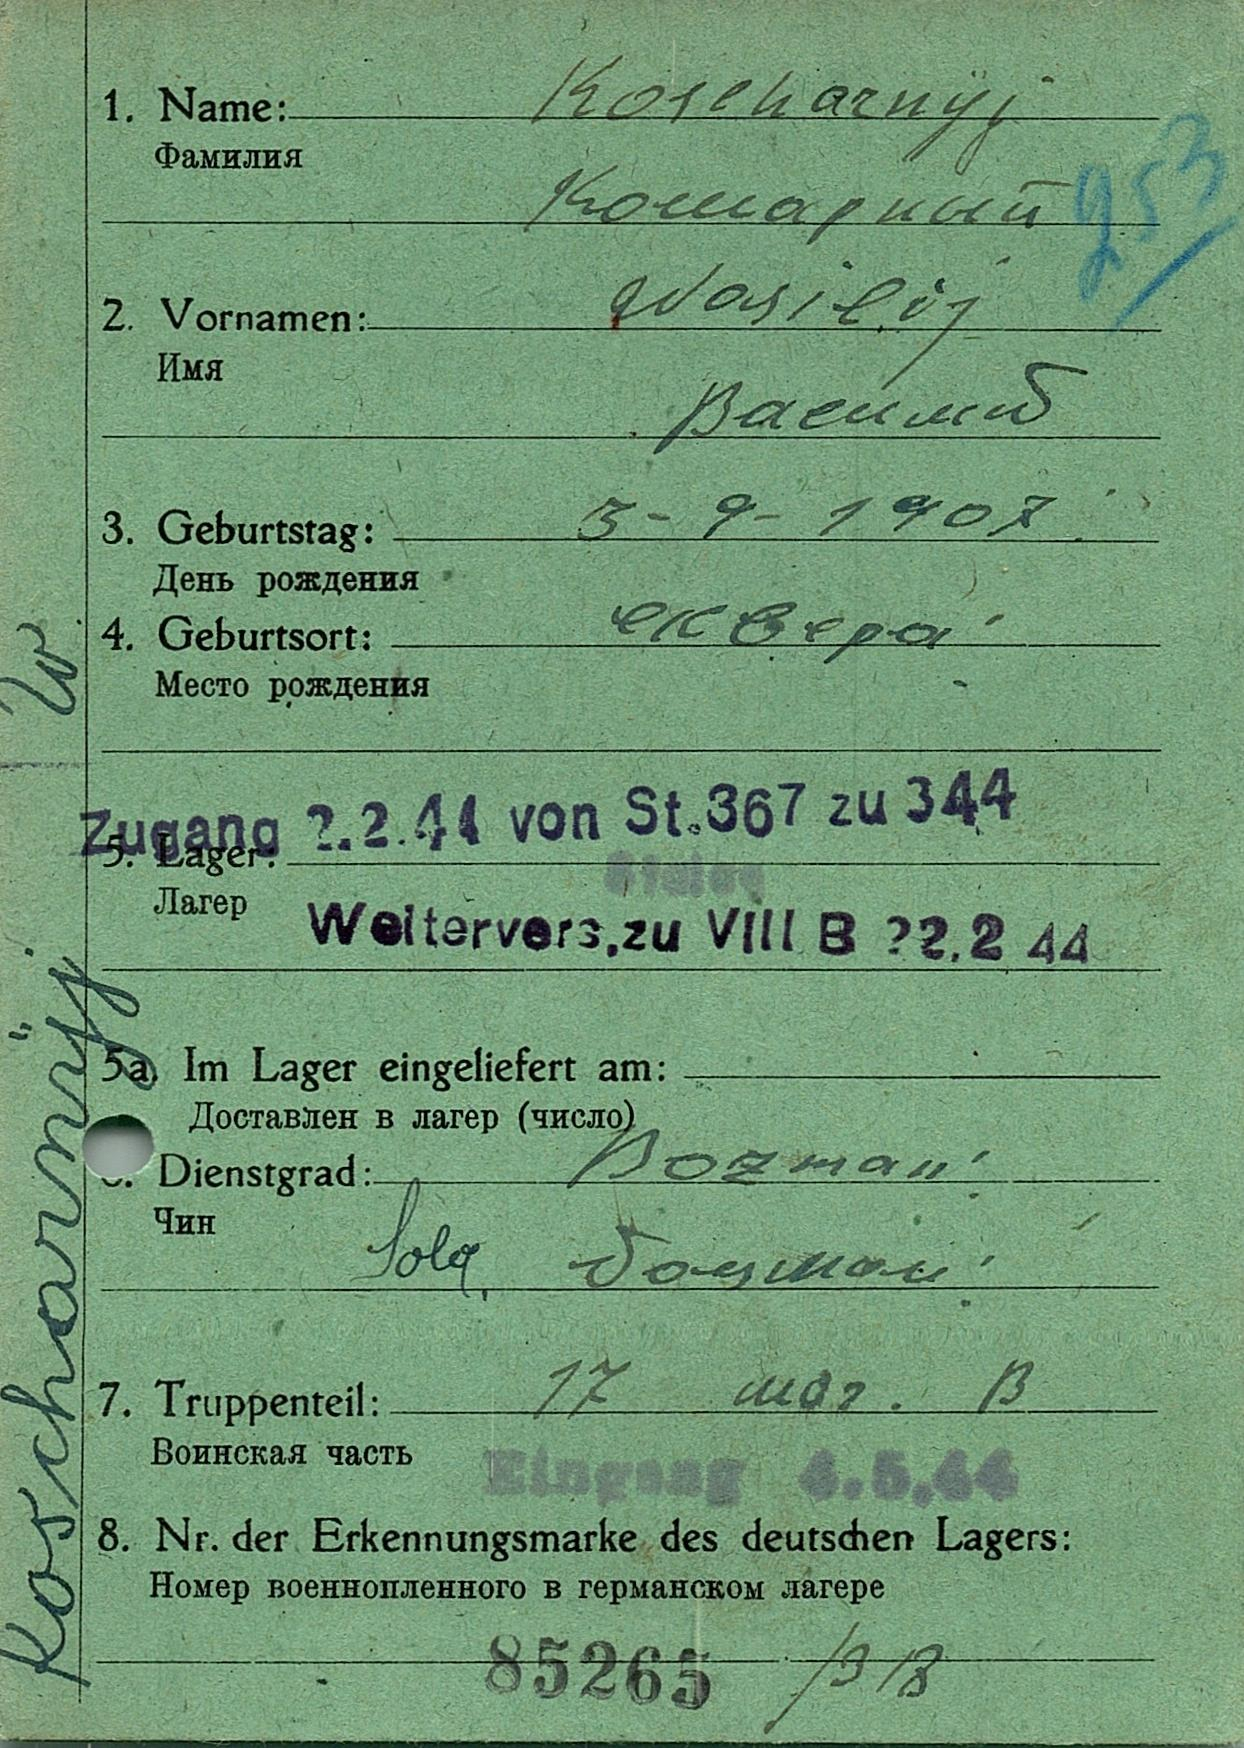 1. Name: Koscharnyj
Фамилия
Кошарный
253
2. Vornamen: Wasilij
Имя
Василий
3. Geburtstag: 5-9-1907
День рождения
4. Geburtsort: сквера
Место рождения
Zugang 2.2.44 von St.367 zu 344
5. Lager:
Stalag
Лагер
Weitervers.zu VIII B 22.2 44
5a. Im Lager eingeliefert am:
Доставлен в лагер (число)
Dienstgrad: Bozman
Чин
Sold, боцман
7. Truppenteil: 17 B
Воинская часть
Eingang 4.5.44
8. Nr. der Erkennungsmarke des deutschen Lagers:
Номер военнопленного в германском лагере
85265 /
Koscharnÿj W.